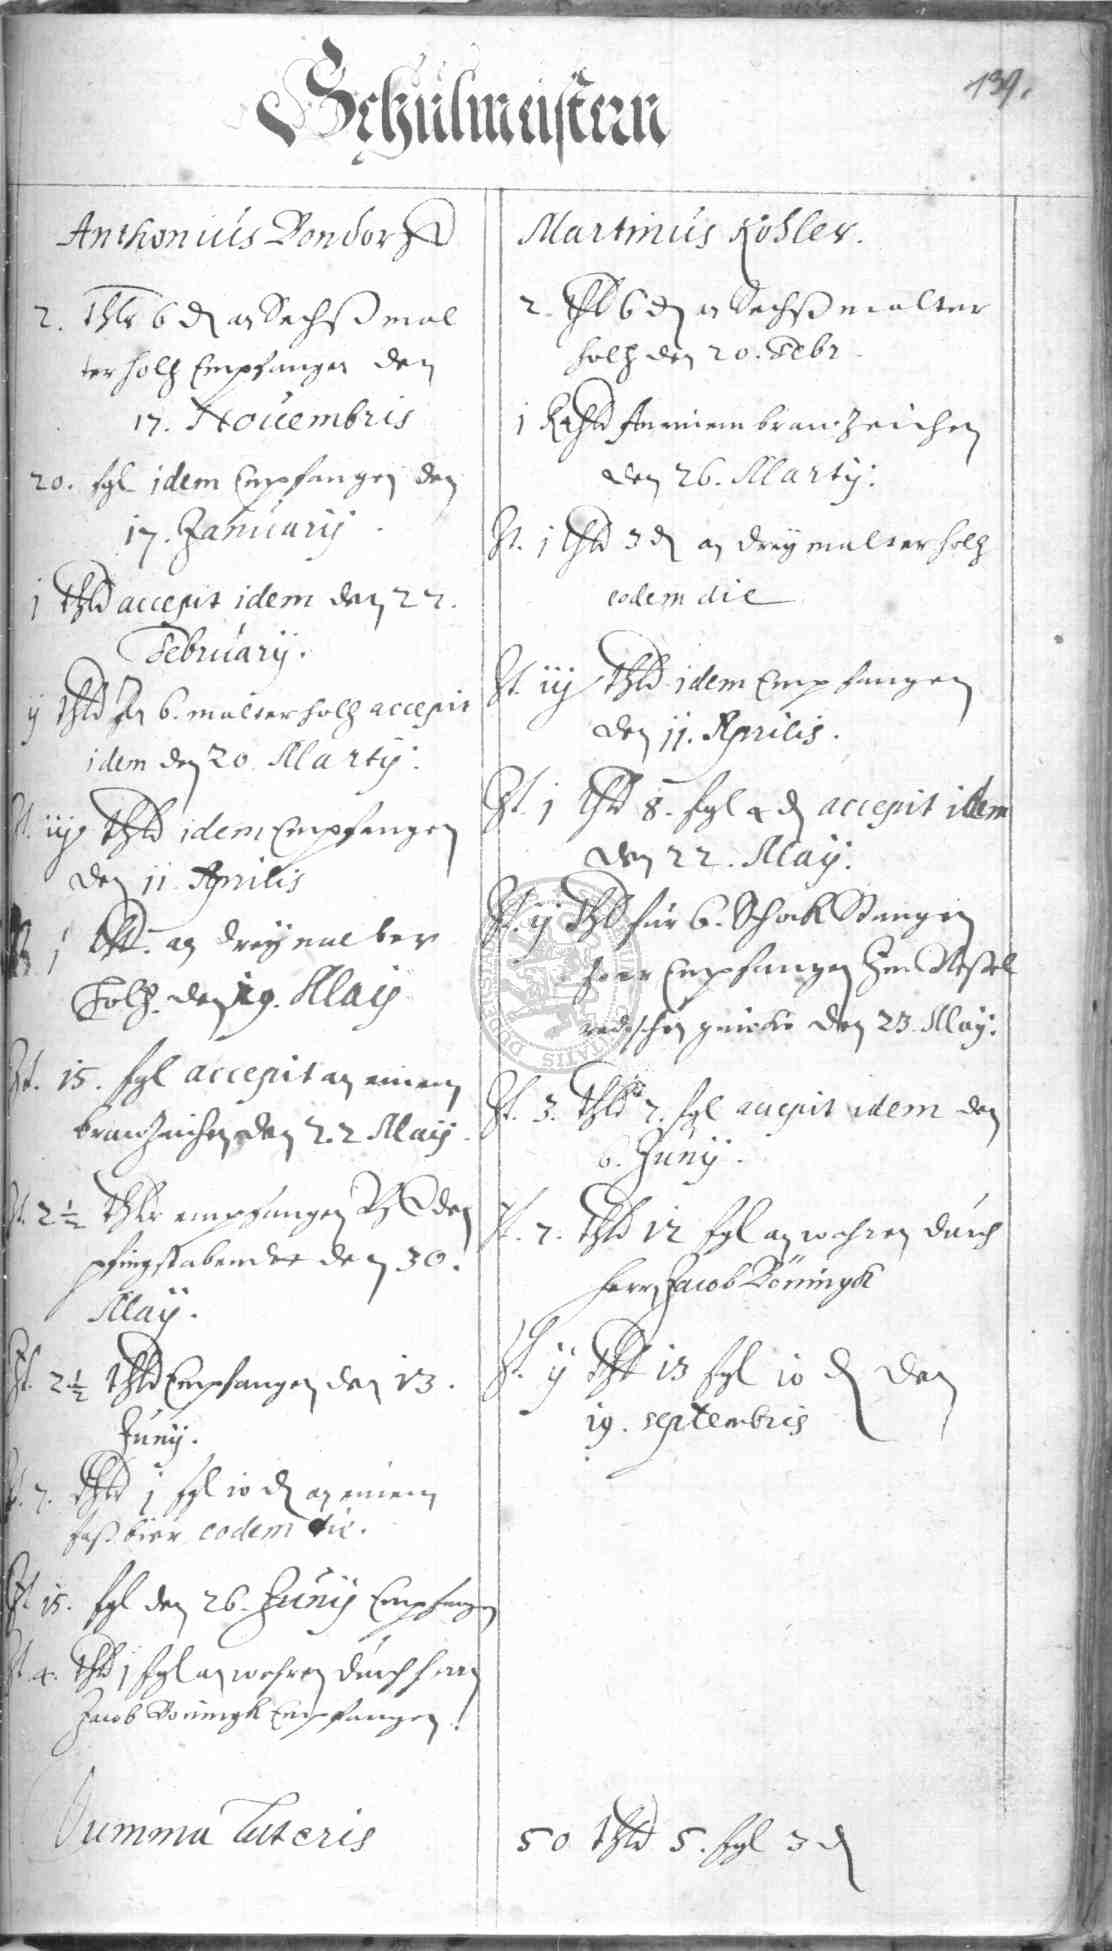 139.
Schulmeistern
Anthonius Bondorff
2. thlr 6 d an Sechß mal
ter holtz Empfangen den
17. Nouembris
20. sgl idem Empfangen den
17. January
j thlr accepit idem den 22.
February.
ij thlr An 6. malter holtz accepit
idem den 20. Marty.
It. iij thlr idem Empfangen
den 11 Aprilis
j thlr. an drey malter
holtz. den 19. May
It. 15. sgl accepit an einem
brauzeichen den 22 May.
It. 2 1/2 thlr empfangen den
pfingstabendt den 30.
May.
It. 2 1/2 thlr Empfangen den 13.
Juny.
It. 2. thlr j sgl 10 d an einem
faß bier eodem die.
It 15. sgl den 26. Juny Empfangen
It 4. thlr j sgl an wahren durch herrn
Jacob Böningk Empfangen.
Martinus Köhler.
2. thlr 6 d an Sechß malter
holtz den 20. Febr.
j thlr An einem brauzeichen
den 26. Marty.
It. j thlr 3 d an drey malter holtz
eodem die
It. iij thlr idem Empfangen
den 11. Aprilis.
It. j thlr 8. sgl 4 d accepit idem
den 22. May.
It. ij thlr für 6. Schock Stangen
Empfangen
den 23. May.
It. 3. thlr 7. sgl accepit idem den
6. Juny.
It. 7. thlr 12 sgl an wahren durch
herrn Jacob Böningk
It. ij thlr 13 sgl 10 d den
19. septembris
Summa Lateris
50 thlr 5. sgl 3 d